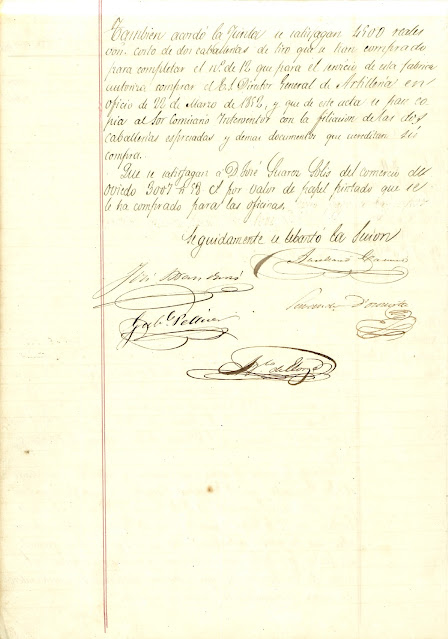 También acordó la Junta se satisfagan 4500 reales
von. costo de dos caballerias de tiro que se han comprado
para completar el no. de 12 que para el servicio de esta fabrica
autoriza comprar el Director General de Artilleria en
oficio de 22 de Marzo de 1852, y que de este acta se pase co-
pia al Sor Comisario Interventor con la filiacion de las dos
caballerias espresadas y demas documentos que acrediten su
compra.
Que se satisfagan a D. José Suarez Solis del comercio de
oviedo 3007 rs por valor de papel pintado que se
le ha comprado para las oficinas.
Seguidamente se lebantó la sesion
José
Gabl. Pellicer
de